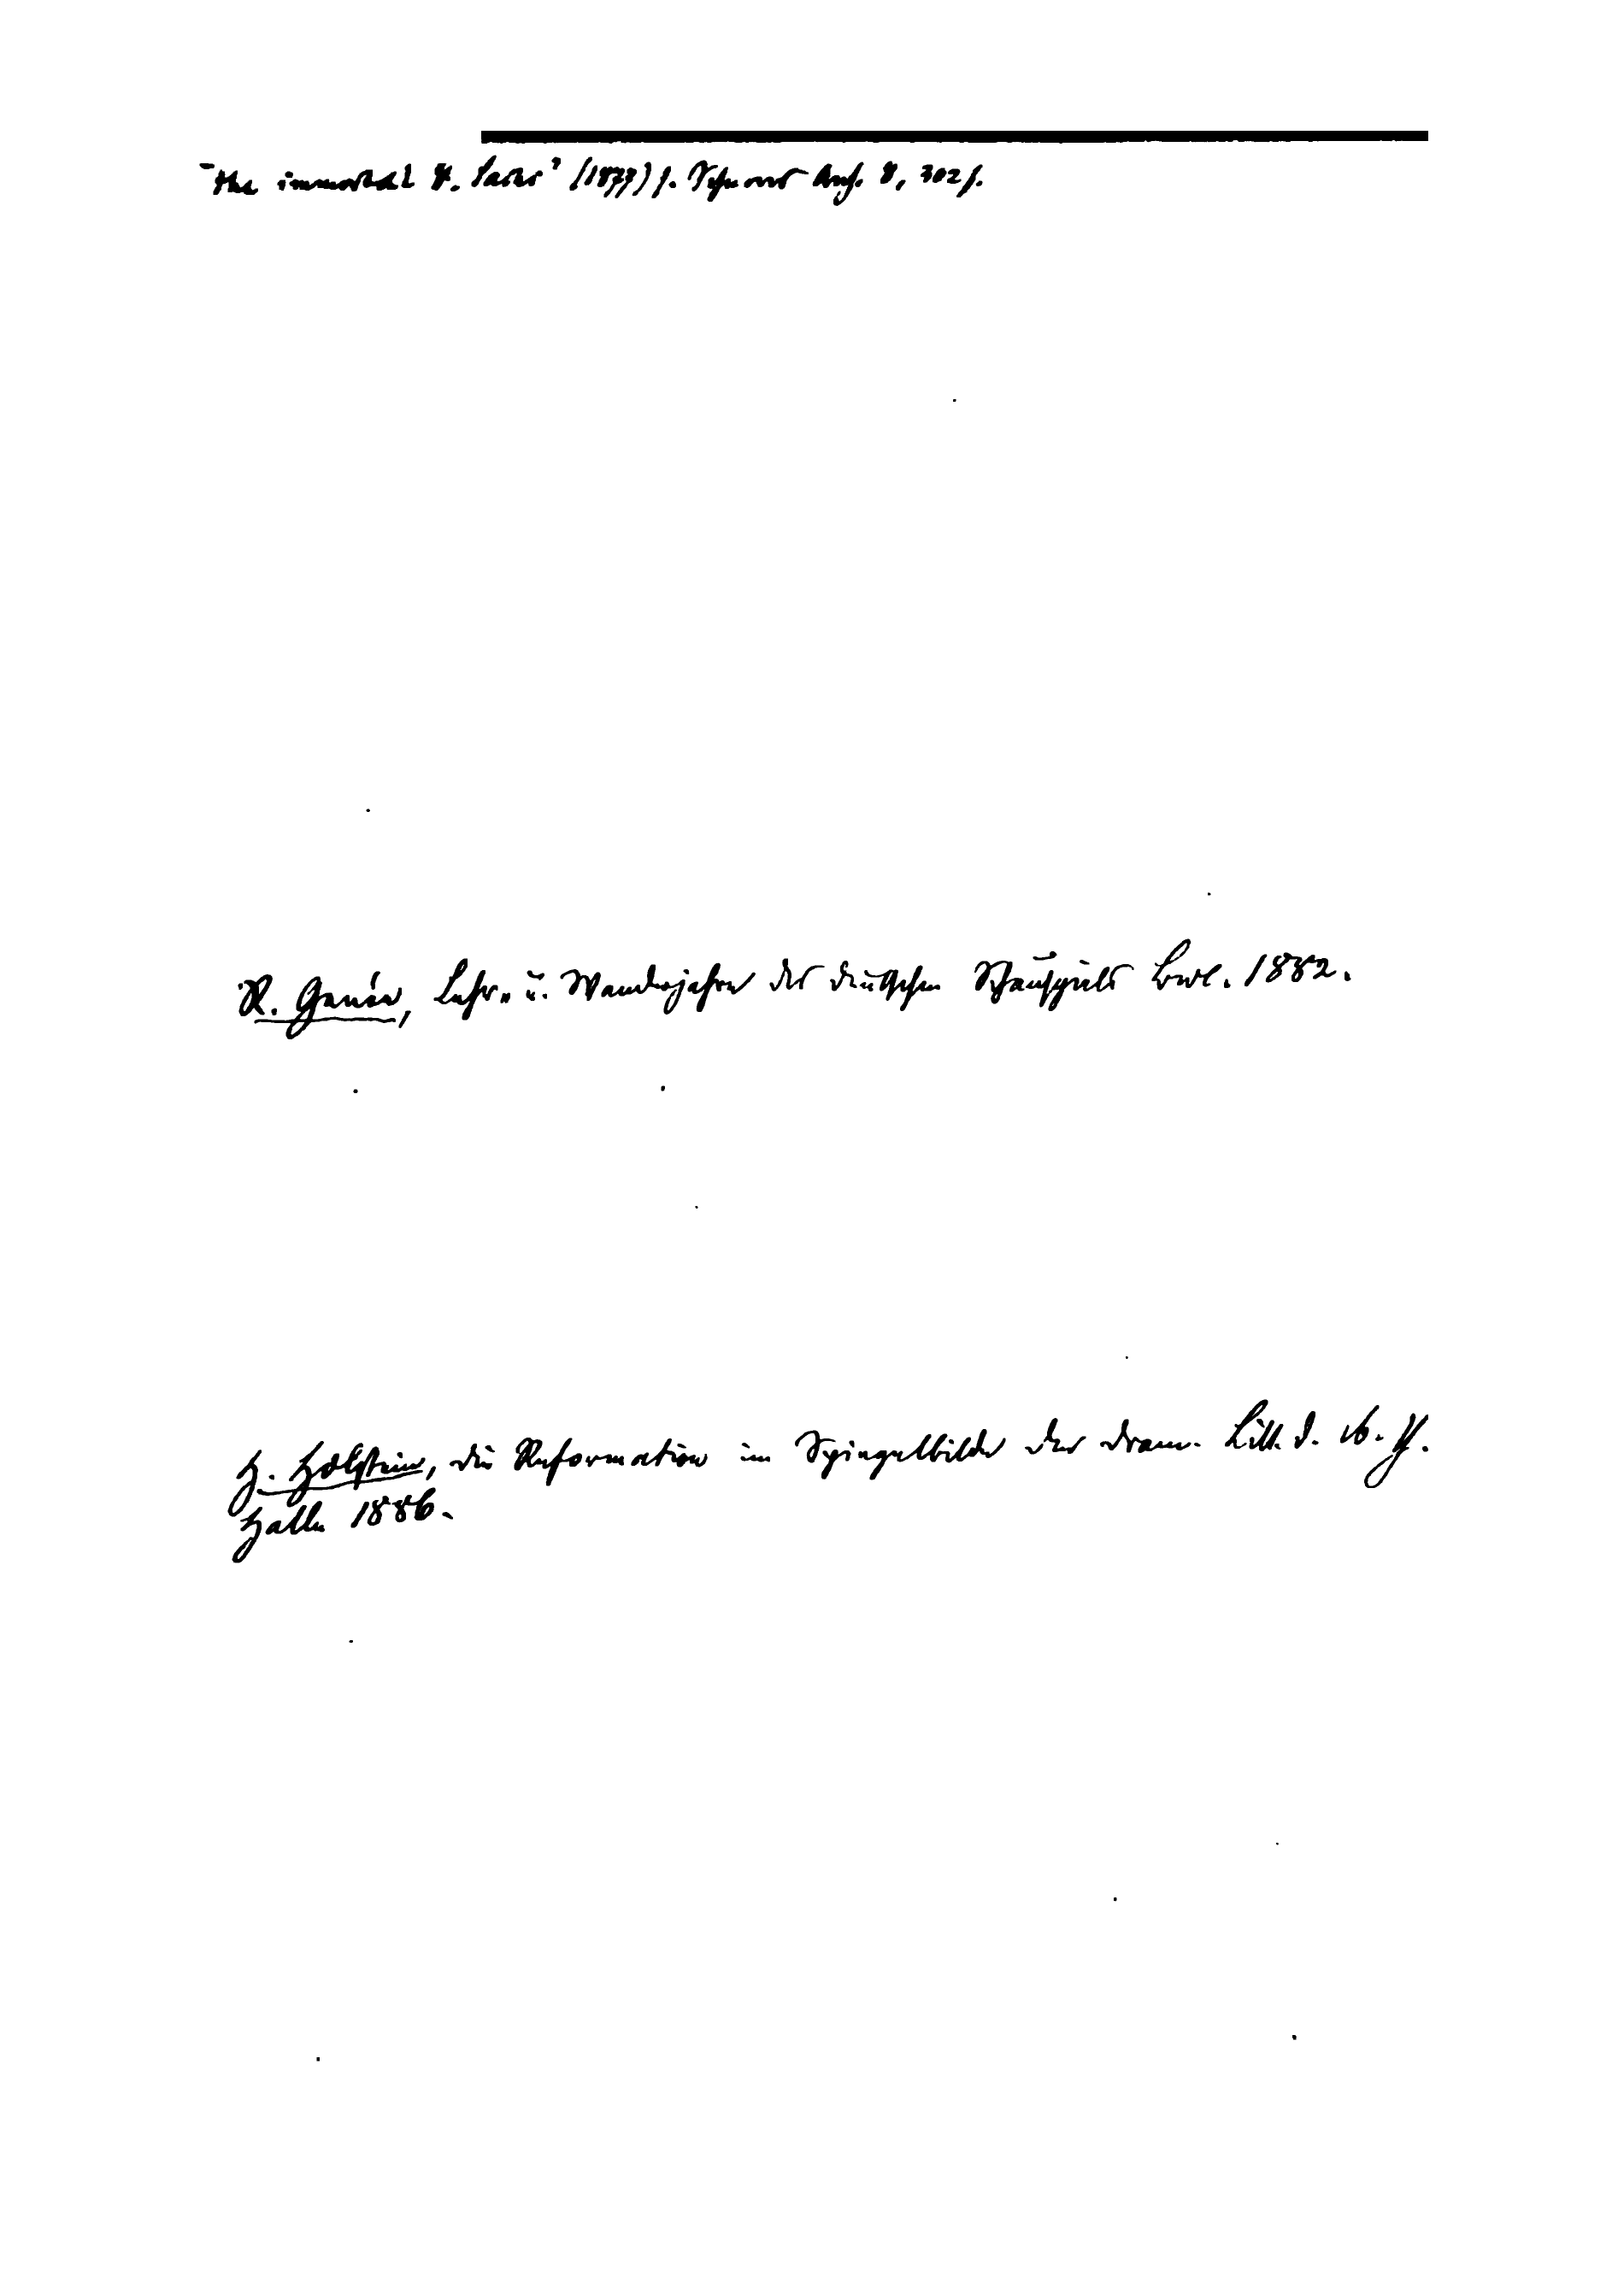 "the immortal H. Sachs" (1877) s. Schnorr Arch. 8, 302 f.
R. Genée, Lehr- u. Wanderjahre des deutschen Schauspiels Berl. 1882.
H. Holstein, die Reformation im Spiegelbilde der dram. Litt. d. 16. Jh.
Halle 1886.